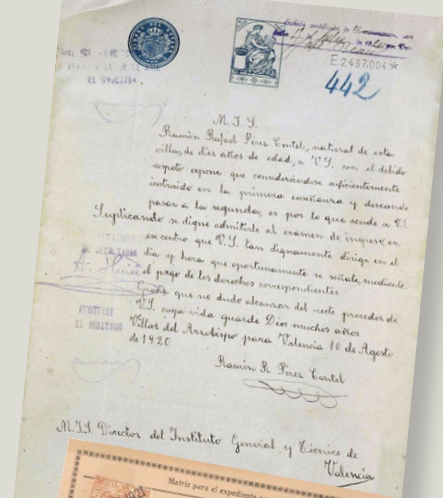 E.2437.004 *
442
M. I. S.
Ramón Rafael Pérez Contel, natural de esta
villa, de diez años de edad, a V.S. con el debido
respeto expone que considerándose suficientemente
instruido en la primera enseñanza y deseando
pasar a la segunda, es por lo que acude a V.S.
Suplicando se digne admitirle al examen de ingreso en
ese centro que V.S. tan dignamente dirige en el
día y hora que oportunamente se señale, mediante
el pago de los derechos correspondientes
Gracia que no dudo alcanzar del recto proceder de
V.S. cuya vida guarde Dios muchos años
Villar del Arzobispo para Valencia 10 de Agosto
de 1920
Ramón R. Pérez Contel
EL DIRECTOR
EL SECRETARIO
ADMÍTASE
EL DIRECTOR
M.I.S. Director del Instituto General y Técnico de
Valencia
Matriz para el expediente